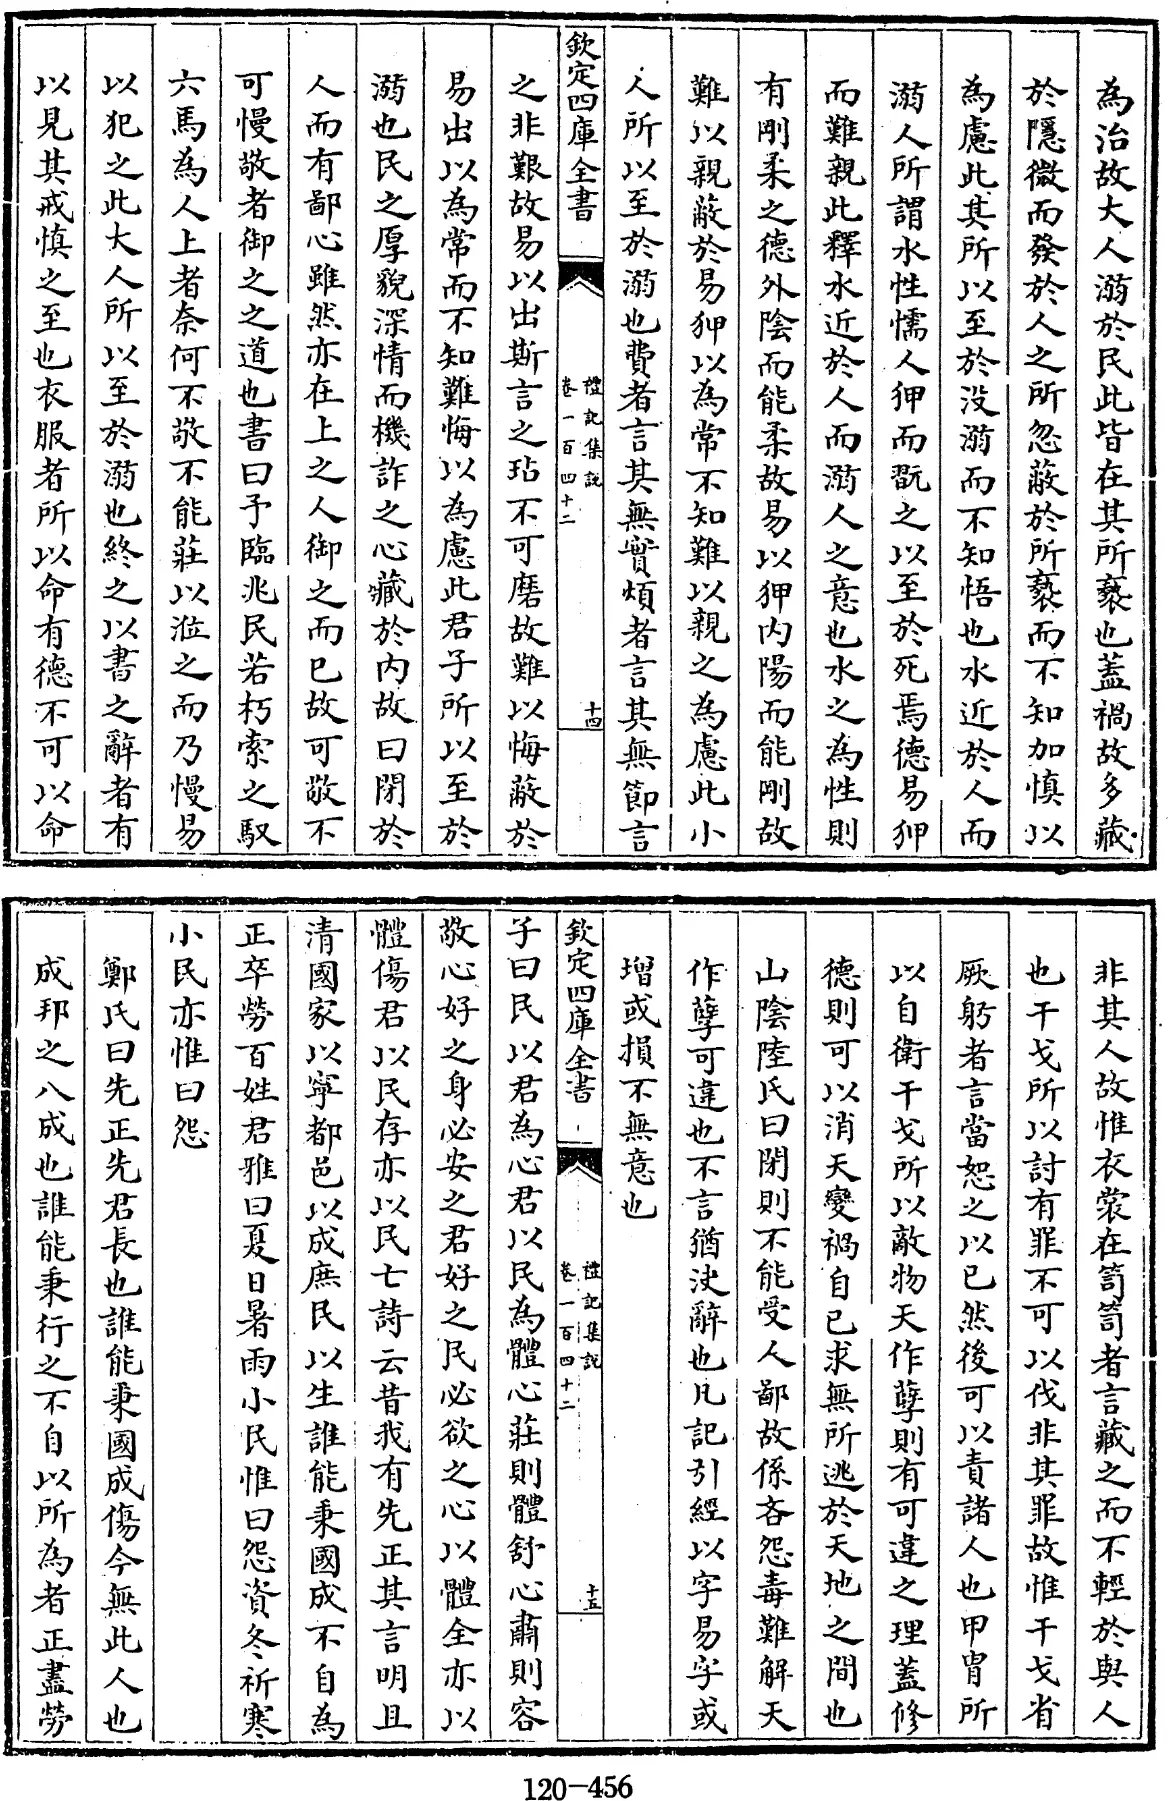 為治故大人溺於民此皆在其所褻也蓋禍故多藏
於隱微而發於人之所忽蔽於所褻而不知加慎以
為慮此其所以至於没溺而不知悟也水近於人而
溺人所謂水性懦人狎而翫之以至於死焉德易狎
而難親此釋水近於人而溺人之意也水之為性則
有剛柔之德外陰而能柔故易以狎内陽而能剛故
難以親蔽於易狎以為常不知難以親之為慮此小
人所以至於溺也費者言其無實煩者言其無節言
欽定四庫全書
禮記集説
卷一百四十二
十四
之非艱故易以出斯言之玷不可磨故難以悔蔽於
易出以為常而不知難悔以為慮此君子所以至於
溺也民之厚貌深情而機詐之心藏於内故曰閉於
人而有鄙心雖然亦在上之人御之而已故可敬不
可慢敬者御之之道也書曰予臨兆民若朽索之馭
六馬為人上者奈何不敬不能莊以涖之而乃慢易
以犯之此大人所以至於溺也終之以書之辭者有
以見其戒慎之至也衣服者所以命有德不可以命
非其人故惟衣裳在笥笥者言藏之而不輕於與人
也干戈所以討有罪不可以伐非其罪故惟干戈省
厥躬者言當恕之以已然後可以責諸人也甲胄所
以自衛干戈所以敵物天作孽則有可違之理蓋修
德則可以消天變禍自已求無所逃於天地之間也
山陰陸氏曰閉則不能受人鄙故係吝怨毒難解天
作孽可違也不言猶決辭也凡記引經以字易字或
增或損不無意也
欽定四庫全書
禮記集説
卷一百四十二
十五
子曰民以君為心君以民為體心莊則體舒心肅則容
敬心好之身必安之君好之民必欲之心以體全亦以
體傷君以民存亦以民亡詩云昔我有先正其言明且
清國家以寧都邑以成庶民以生誰能秉國成不自為
正卒勞百姓君雅曰夏日暑雨小民惟曰怨資冬祈寒
小民亦惟曰怨
鄭氏曰先正先君長也誰能秉國成傷今無此人也
成邦之八成也誰能秉行之不自以所為者正盡勞
120-456